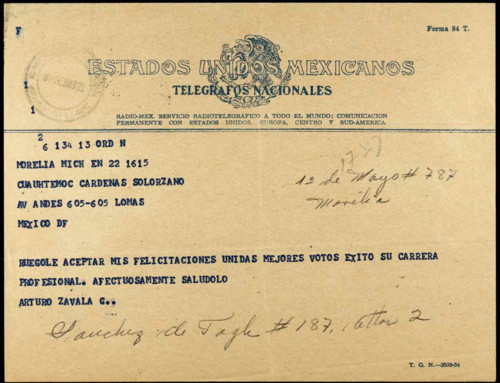 F
Forma 84 T.
ESTADOS UNIDOS MEXICANOS
TELEGRAFOS NACIONALES
RADIO-MEX. SERVICIO RADIOTELEGRAFICO A TODO EL MUNDO; COMUNICACION
PERMANENTE CON ESTADOS UNIDOS, EUROPA, CENTRO Y SUD-AMERICA.
1
1
2
6 134 13 ORD N
MORELIA MICH EN 22 1615
CUAUHTEMOC CARDENAS SOLORZANO
AV ANDES 605-605 LOMAS
MEXICO DF
787
1º de Mayo # 787
Morelia
RUEGOLE ACEPTAR MIS FELICITACIONES UNIDAS MEJORES VOTOS EXITO SU CARRERA
PROFESIONAL. AFECTUOSAMENTE SALUDOLO
ARTURO ZAVALA G..
Sanchez de Tagle # 187, 2
T. G. N.—2509-54